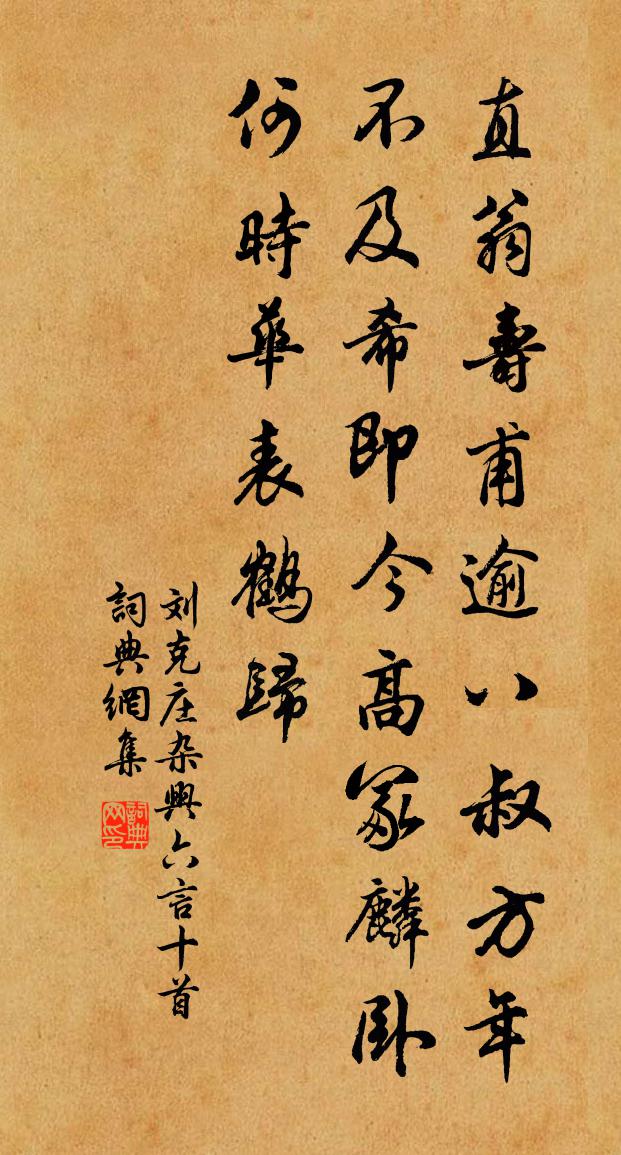 直翁壽甫逾八叔方年
不及希即今高冢麟卧
何時華表鶴歸
刘克庄杂興六言十首
詞典網集
詞典
网印